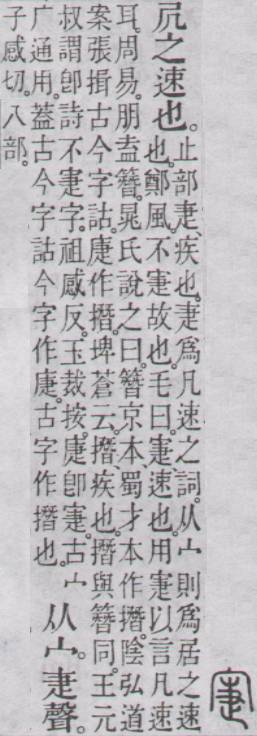 寁
凥之速也。
止部疌、疾也。疌爲凡速之詞。从宀則爲居之速
也。鄭風。不寁故也。毛曰。寁、速也。用寁以言凡速
耳。周易。朋盍簪。晁氏說之曰。簪京本、蜀才本作撍。陰弘道
案張揖古今字詁。⿸广疌作撍。埤蒼云。撍、疾也。撍與簪同。王元
叔謂卽詩不寁字。祖感反。玉裁按。⿸广疌卽寁。古宀
广通用。葢古今字詁今字作⿸广疌。古字作撍也。
从宀。疌聲。
子感切。八部。